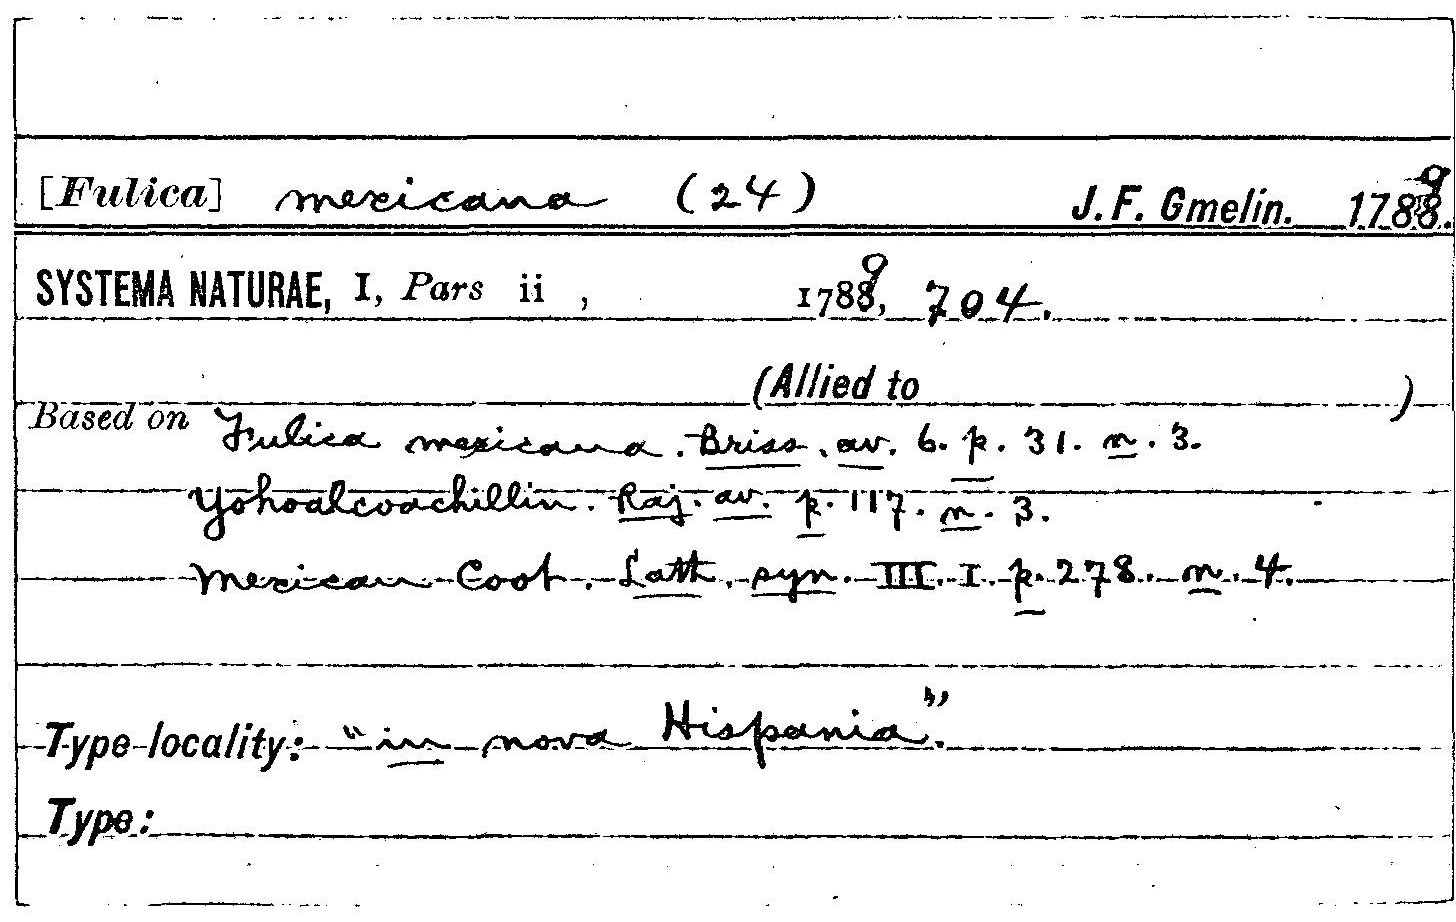 [Fulica] mexicana (24) J. F. Gmelin. 1789.
SYSTEMA NATURAE, I, Pars ii , 1789, 704.
(Allied to )
Based on Fulica mexicana. Briss. av. 6. p. 31. n. 3.
Yohoalcoachillin. Raj. av. p. 117. n. 3.
Mexican Coot. Lath. syn. III. I. p. 278. n. 4.
Type locality: "in nova Hispania".
Type: